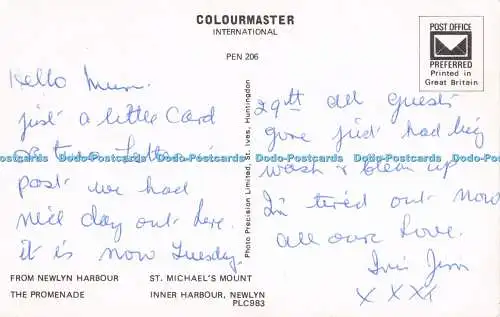 COLOURMASTER
INTERNATIONAL
PEN 206
POST OFFICE
PREFERRED
Printed in
Great Britain
Hello Mum.
just a little card
post we had
nice day out here.
it is now Tuesday.
Photo Precision Limited, St. Ives, Huntingdon
29th all guests
gone just had big
wash & clean up
I'm tired out now
all our love.
Jim
X X X X
Dodo-Postcards Dodo-Postcards Dodo-Postcards Dodo-Postcards Dodo-Postcards Dodo-Postcards
FROM NEWLYN HARBOUR ST. MICHAEL'S MOUNT
THE PROMENADE INNER HARBOUR, NEWLYN
PLC983